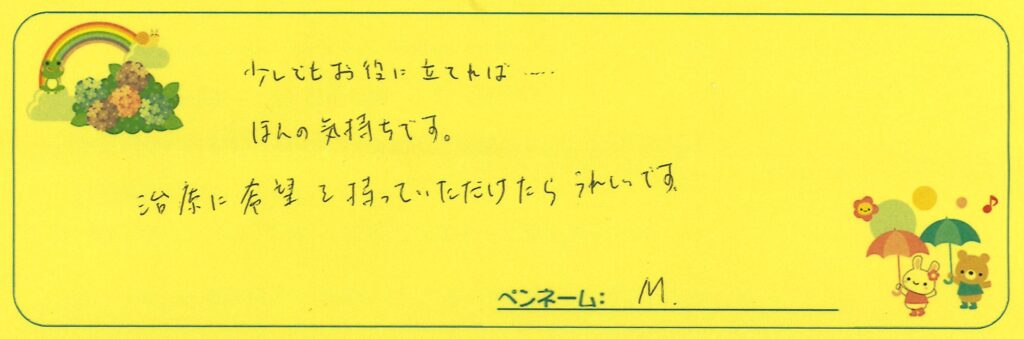 少しでもお役に立てれば……
ほんの気持ちです。
治療に希望を持っていただけたらうれしいです。
ペンネーム： M.